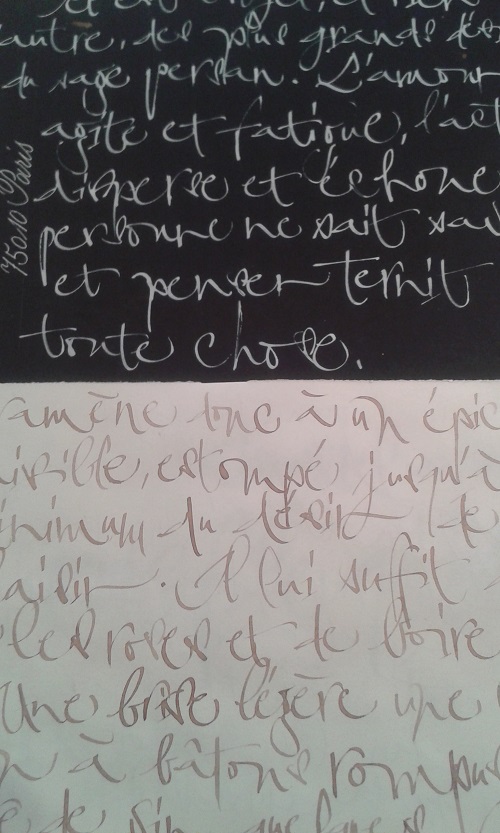 autre, des plus grands dés
du sage persan. L'amour
agite et fatigue, l'act
disperse et échoue
personne ne sait sav
et penser ternit
toute chose.
75010 Paris
amène donc à un épic
isible, estompé jusqu'à
inimum du désir de
laisir. Il lui suffit
les roses et de boire
Une brise légère, une
à bâtons rompus